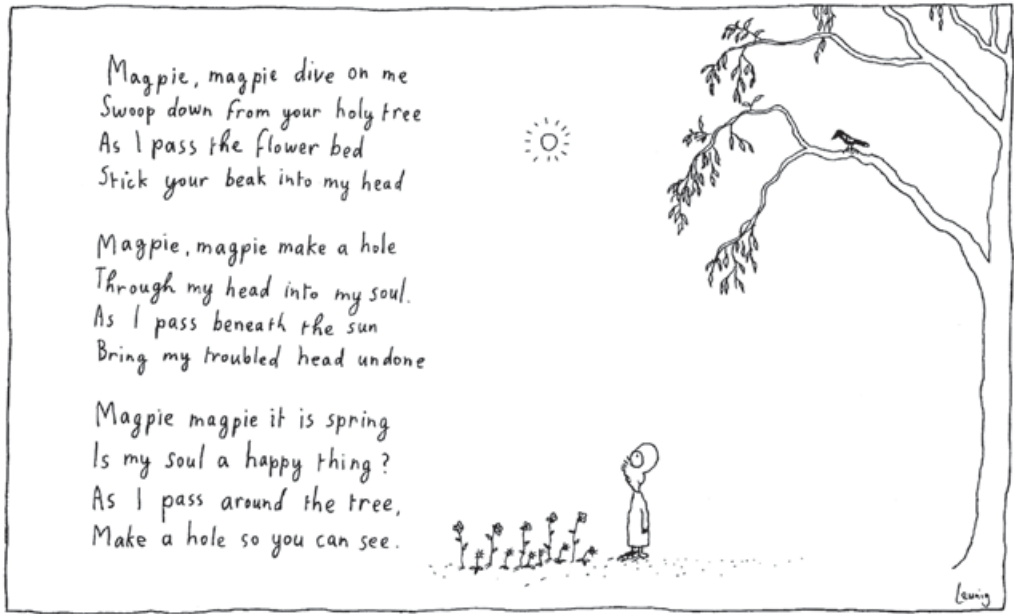 Magpie, magpie dive on me
Swoop down from your holy tree
As I pass the flower bed
Stick your beak into my head
Magpie, magpie make a hole
Through my head into my soul.
As I pass beneath the sun
Bring my troubled head undone
Magpie magpie it is spring
Is my soul a happy thing?
As I pass around the tree,
Make a hole so you can see.
Leunig